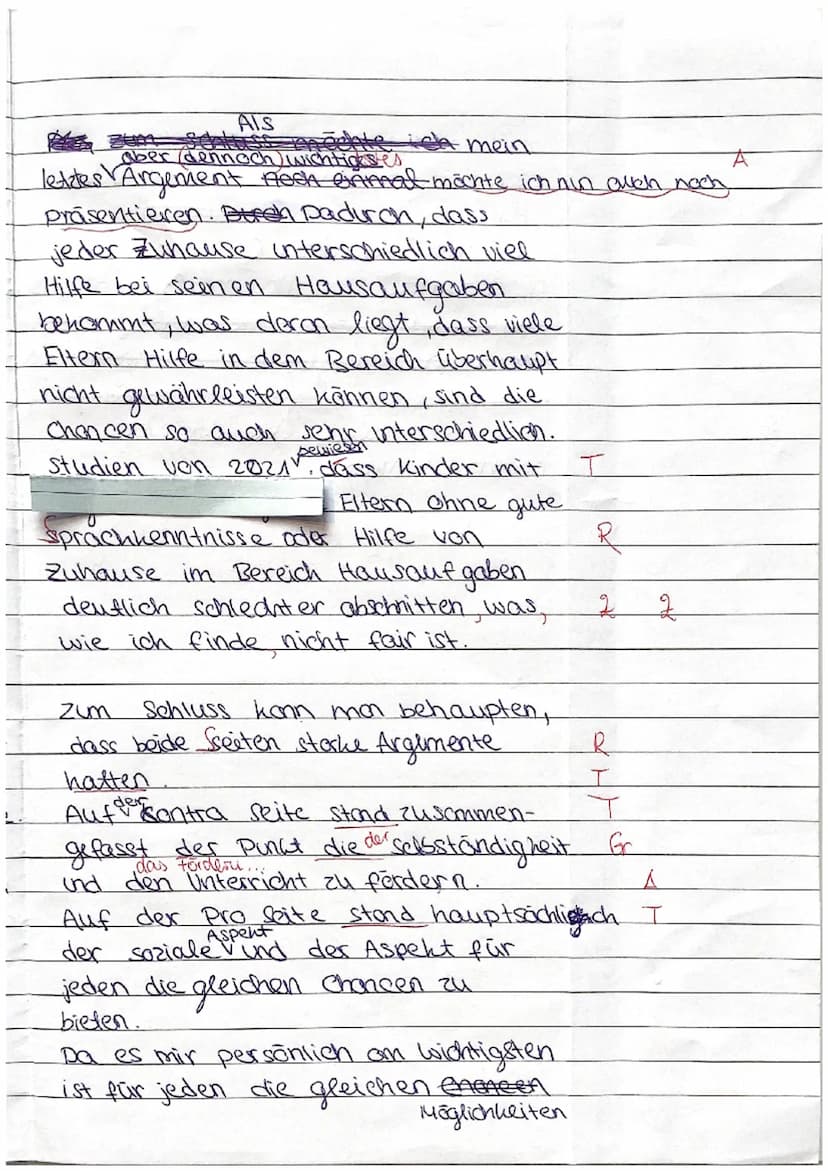 Als
zum Schluss möchte ich mein
aber (dennoch) wichtigstes
letztes Argement noch einmal möchte ich nun auch noch A
präsentieren. Durch Dadurch, dass
jeder Zuhause unterschiedlich viel
Hilfe bei seinen Hausaufgaben
bekommt, was daran liegt, dass viele
Eltern Hilfe in dem Bereich überhaupt
nicht gewährleisten können, sind die
Chancen so auch sehr unterschiedlich.
bewiesen
Studien von 2021, dass Kinder mit T
Eltern ohne gute
Sprachkenntnisse oder Hilfe von R
Zuhause im Bereich Hausaufgaben
deutlich schlechter abschnitten, was, 2 2
wie ich finde, nicht fair ist.
Zum Schluss kann man behaupten,
dass beide Seiten starke Argumente R
hatten. T
Auf der Kontra Seite stand zusammen- T
gefasst der Punkt die der Selbständigkeit Gr
das Fördern...
und den Unterricht zu fördern. A
Auf der Pro Seite stand hauptsächlich T
Aspekt
der soziale und der Aspekt für
jeden die gleichen Chancen zu
bieten.
Da es mir persönlich am wichtigsten
ist für jeden die gleichen Chancen
Möglichkeiten